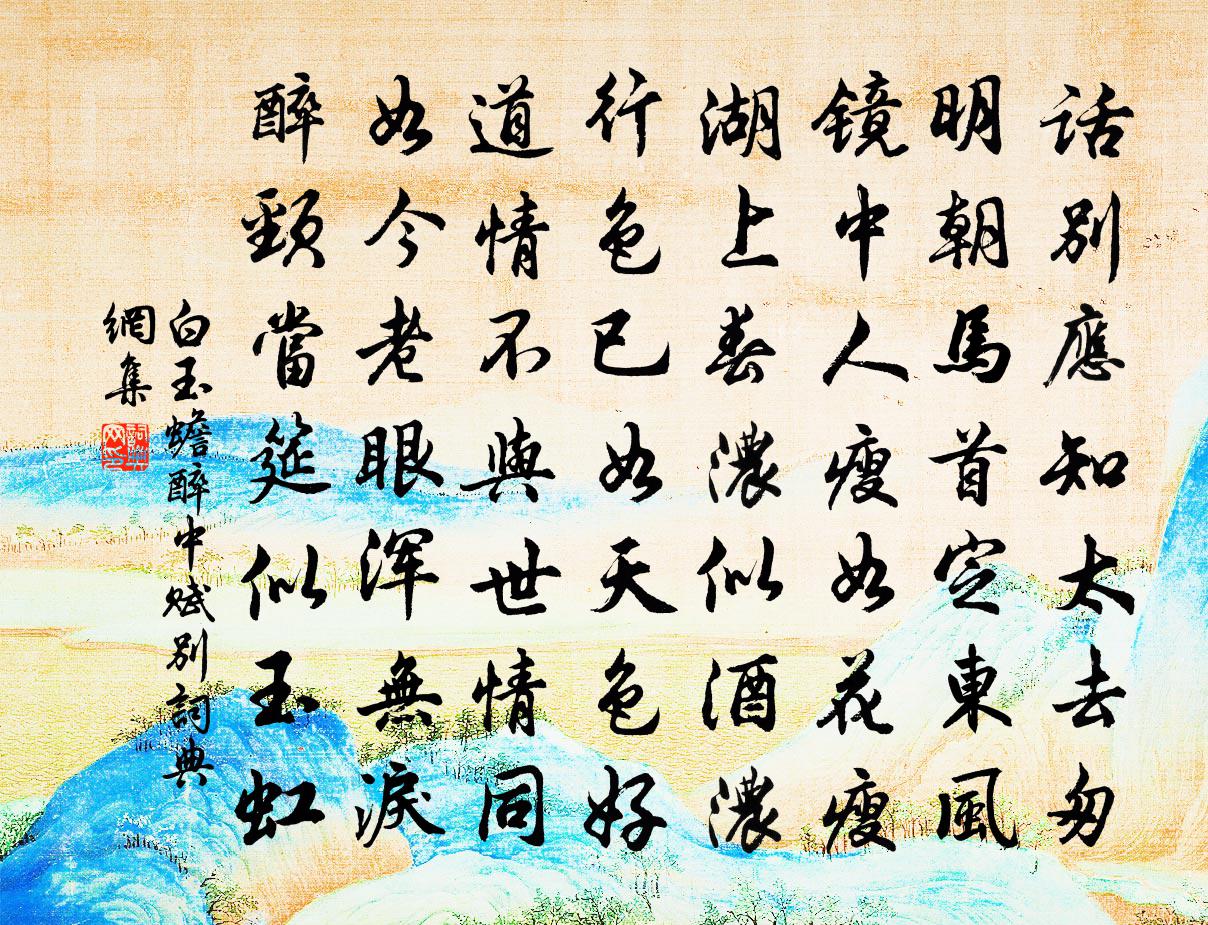 話別應知太去匆
明朝馬首定東風
鏡中人瘦如花瘦
湖上春濃似酒濃
行色已如天色好
道情不與世情同
如今老眼渾無淚
醉頸當筵似玉虹
白玉蟾醉中賦別詞典
網集